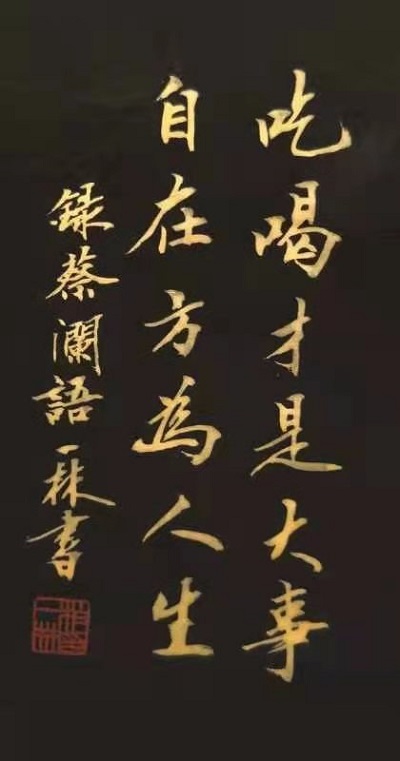 吃喝才是大事
自在方為人生
録蔡瀾語一秝書